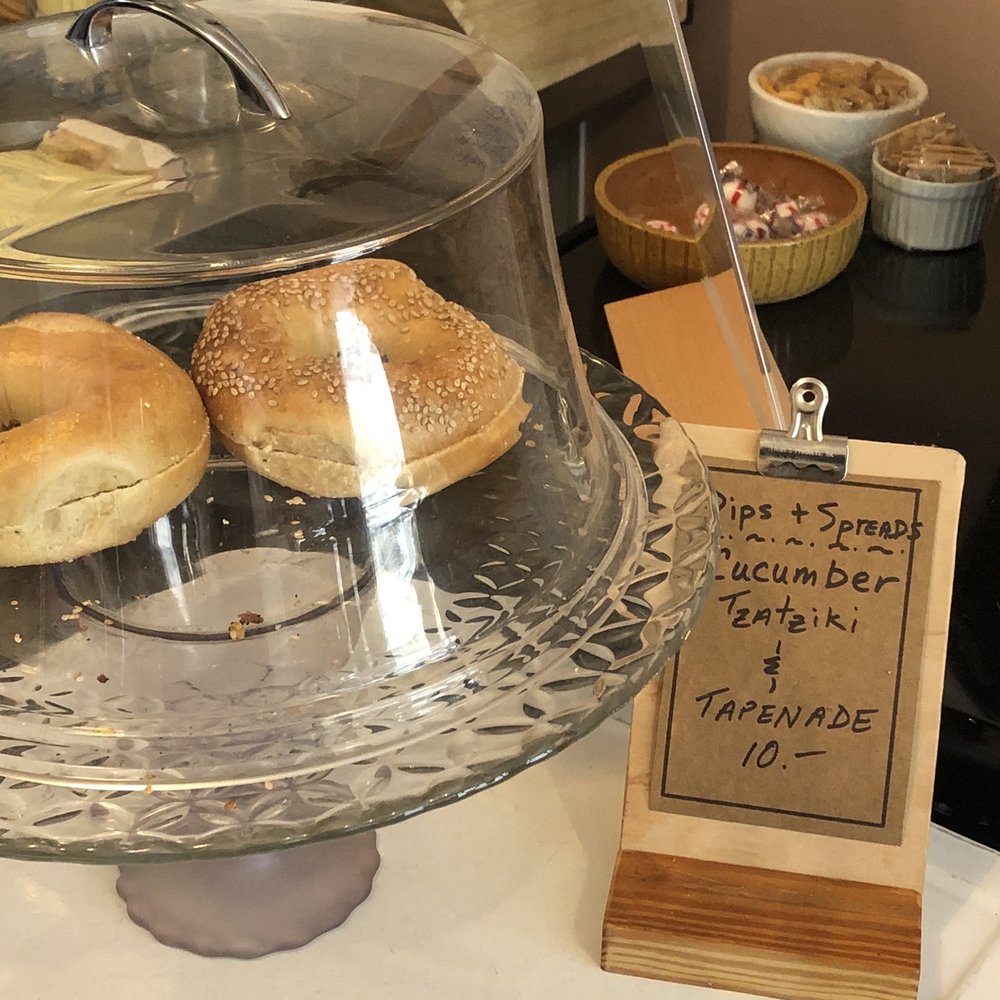 Dips + Spreads
Cucumber
Tzatziki
&
TAPENADE
10.-